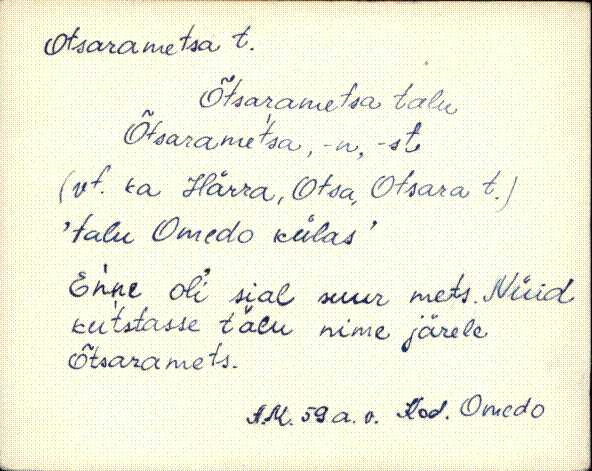 Otsarametsa t.
Õtsarametsa talu
Õtsarametsa, -n, -st
(vt. ka Härra, Otsa, Otsara t.)
'talu Omedo külas'
Enne oli sial suur mets. Nüid
kutstasse talu nime järele
Õtsaramets.
A.M. 59.a.v. Kod. Omedo